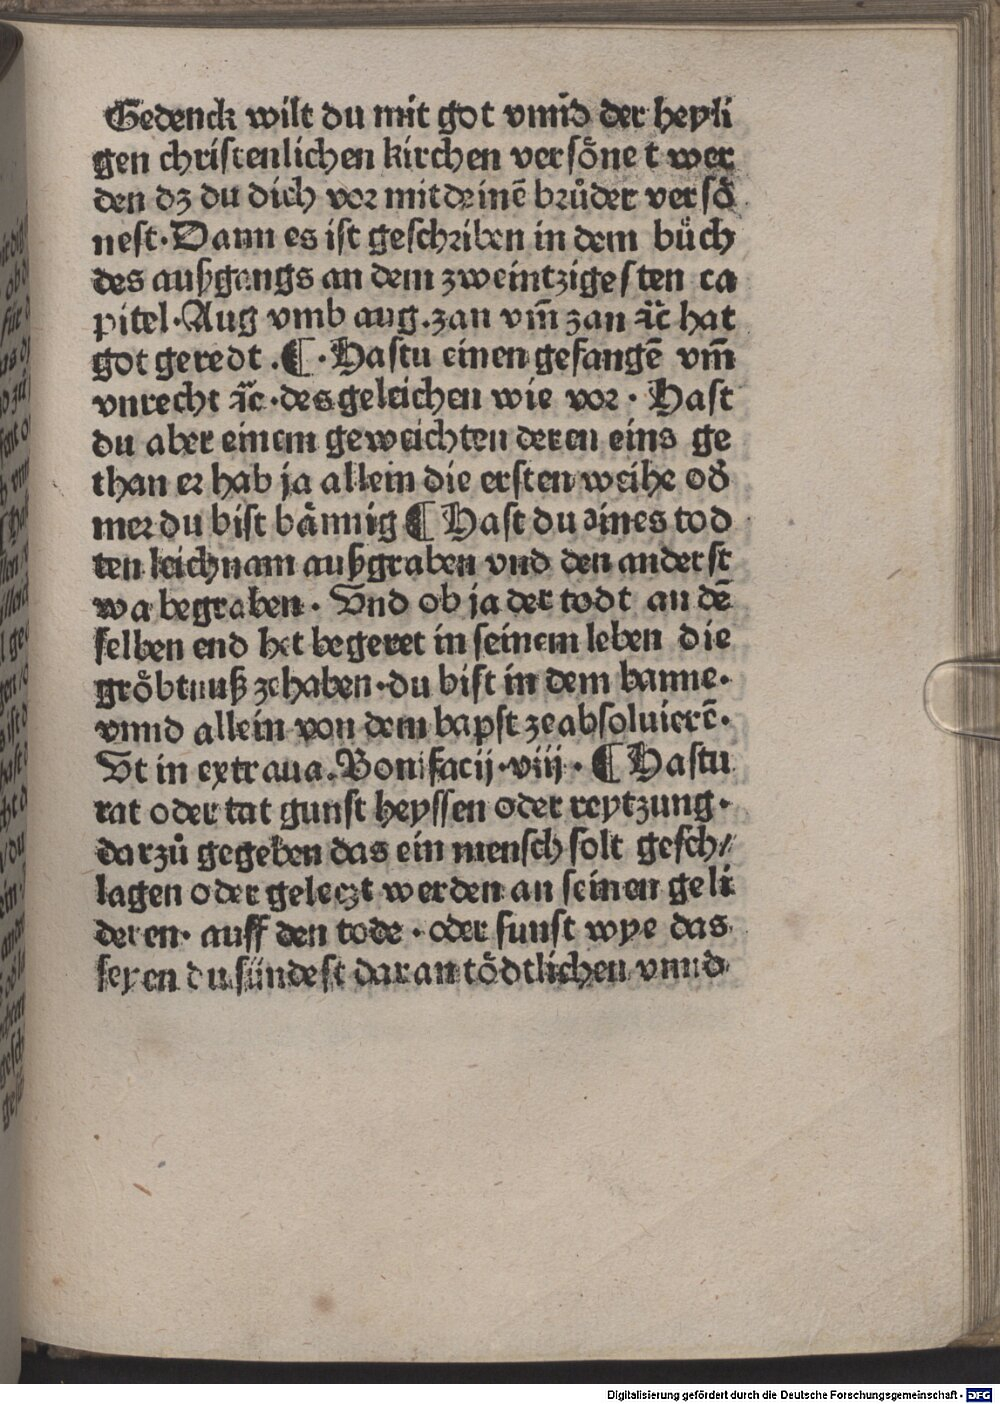 Gedenck wilt du mit got vnnd der heyli
gen christenlichen kirchen versönet wer
den dz du dich vor mit deinē brůder versö
nest. Dann es ist geschriben in dem bůch
des außgangs an dem zweintzigesten ca
pitel. Aug vmb aug. zan vm̄ zan ⁊c̄ hat
got geredt. ¶. Hastu einen gefangē vm̄
vnrecht ⁊c̄. des geleichen wie vor. Hast
du aber einem geweichten deren eins ge
than er hab ja allein die ersten weihe od̄
mer du bist bännig ¶ Hast du eines tod
ten leichnam außgraben vnd den anderst
wa begraben. Vnd ob ja der todt an dē
selben end het begeret in seinem leben die
gröbtnuß zehaben. du bist in dem banne.
vnnd allein von dem bapst zeabsoluierē.
Vt in extraua. Bonifacij. viij. ¶ Hastu
rat oder tat gunst heyssen oder reytzung.
darzů gegeben das ein mensch solt gesch/
lagen oder geleczt werden an seinen geli
deren. auff den tode. oder sunst wye das
seyen du sündest daran tödtlichen vnnd
Digitalisierung gefördert durch die Deutsche Forschungsgemeinschaft - DFG